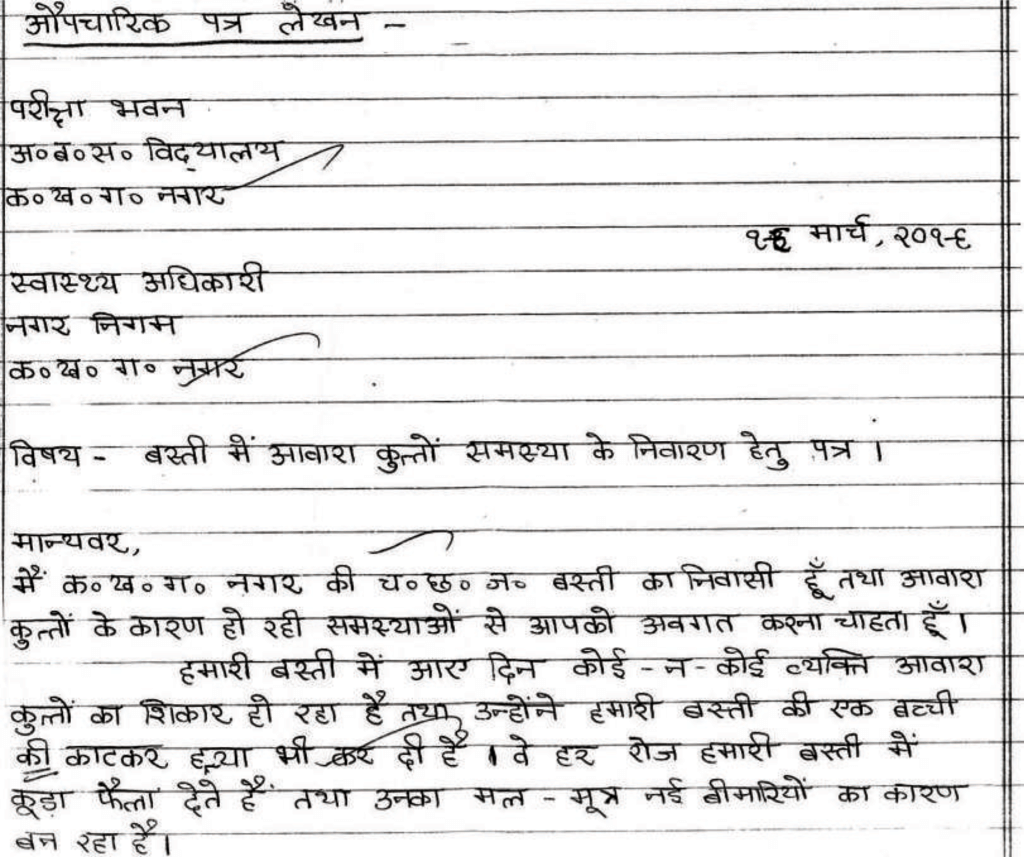 औपचारिक पत्र लेखन -
परीक्षा भवन
अ०ब०स० विद्यालय
क०ख०ग० नगर
१६ मार्च, २०१६
स्वास्थ्य अधिकारी
नगर निगम
क०ख० ग० नगर
विषय - बस्ती में आवारा कुत्तों समस्या के निवारण हेतु पत्र ।
मान्यवर,
मैं क०ख० ग० नगर की च०छ० ज० बस्ती का निवासी हूँ तथा आवारा
कुत्तों के कारण हो रही समस्याओं से आपको अवगत करना चाहता हूँ ।
हमारी बस्ती में आए दिन कोई - न - कोई व्यक्ति आवारा
कुत्तों का शिकार हो रहा है तथा उन्होंने हमारी बस्ती की एक बच्ची
की काटकर हत्या भी कर दी है । वे हर रोज हमारी बस्ती में
कूड़ा फैला देते हैं तथा उनका मल - मूत्र नई बीमारियों का कारण
बन रहा है ।